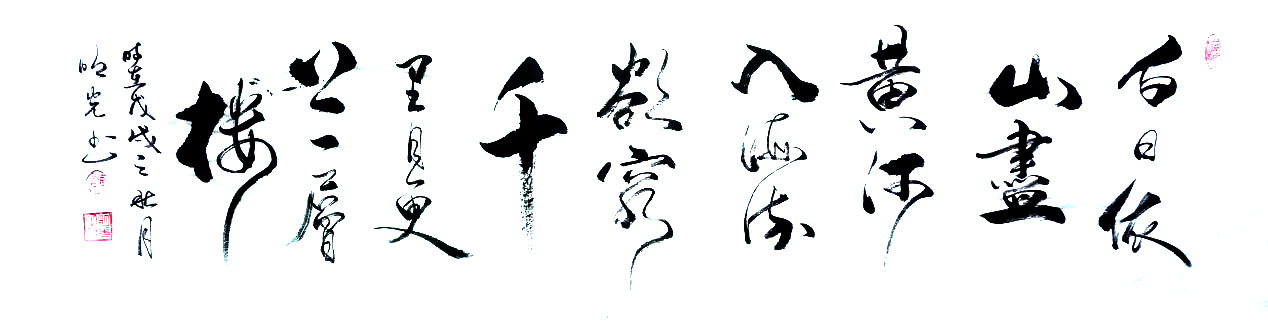 白日依
山盡
黄河
入海流
欲窮
千
里目更
上一層
楼
時在戊戌之秋月
明光书